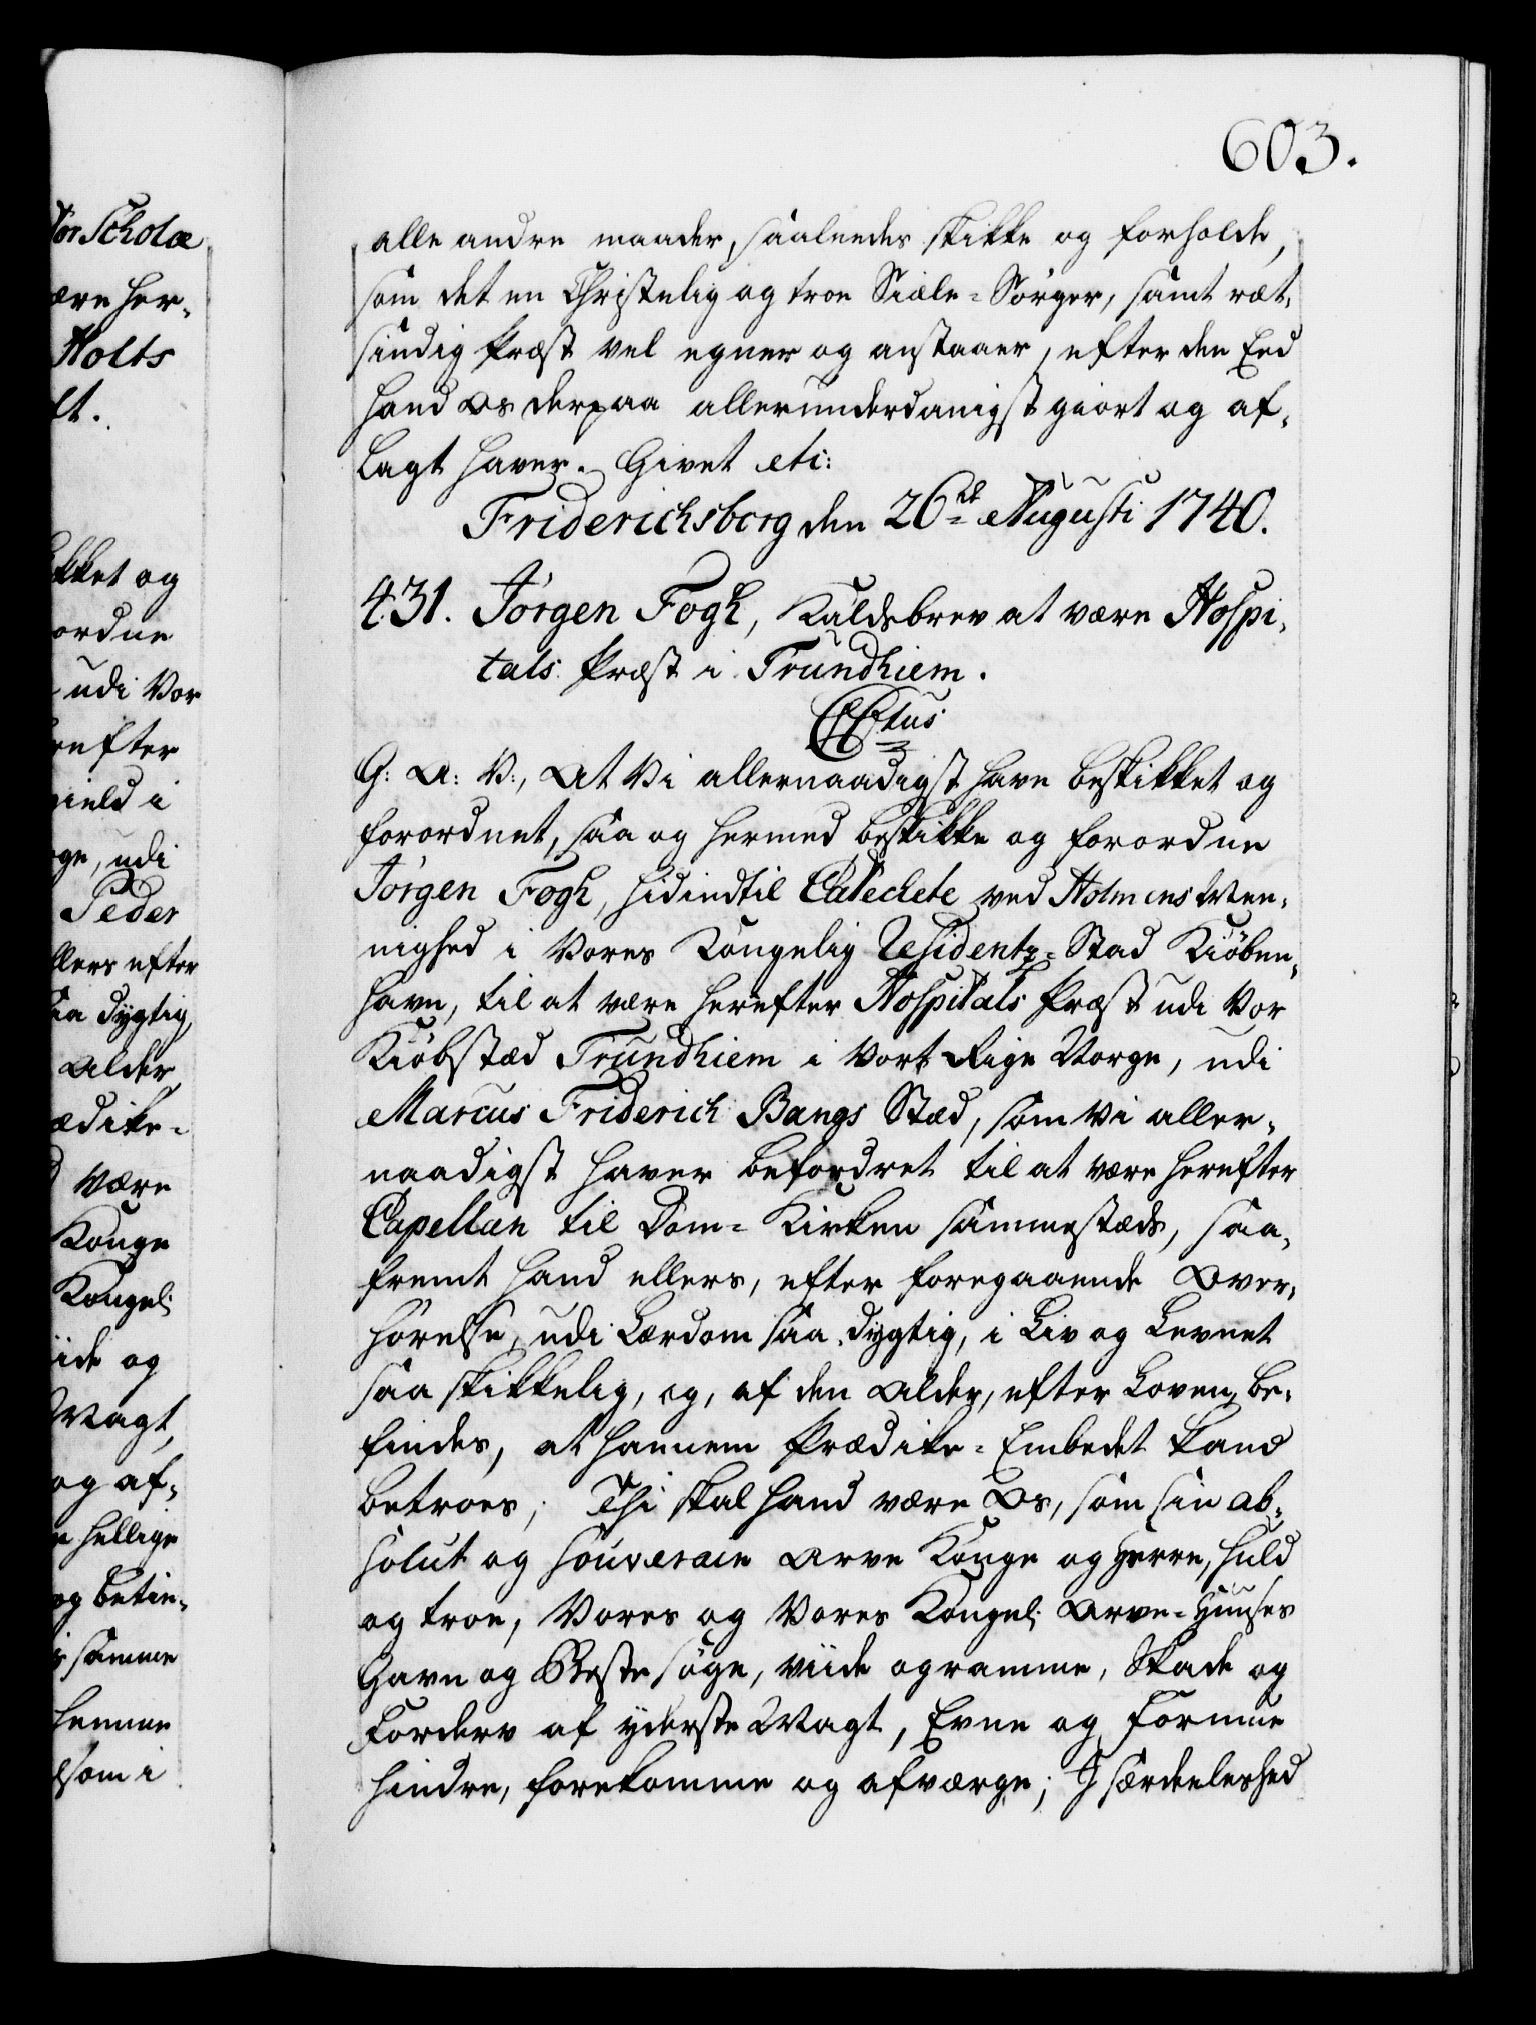 603.
alle andre maader, saaleedes skikke og forholde,
som det en Christelig og troe Siæle-Sörger, samt ræt-
sindig Præst vel egner og anstaaer, efter den Eed
hand Os derpaa allerunderdanigst giort og af-
lagt haver. Givet etc:
Friderichsborg den 26de Augusti 1740.
431. Jörgen Fogh, Kaldsbrev at være Hospi-
tals Præst i Trundhiem.
CCtus
G: A: V:, At Vi allernaadigst have beskikket og
forordnet, saa og hermed beskikke og forordne
Jörgen Fogh, hidindtil Catechete ved Holmens Mee-
nighed i Vores Kongelig Residentz-Stad Kiöben-
havn, til at være herefter Hospitals Præst udi Vor
Kiöbstæd Trundhiem i Vort Rige Norge, udi
Marcus Friderich Bangs Stæd, som Vi aller-
naadigst haver befordret til at være herefter
Capellan til Dom-Kirken sammestæds, saa-
fremt hand ellers, efter foregaaende Over-
hörelse, udi Lærdom saa dygtig, i Liv og Levnet
saa skikkelig, og, af den Alder, efter Loven, be-
findes, at hannem Prædike-Embedet kand
betroes; Thi skal hand være Os, som sin ab-
solut og souverain Arve Konge og Herre, huld
og troe, Vores og Vores Kongel: Arve-Huuses
Gavn og Beste söge, viide og ramme, Skade og
Forderv af yderste Magt, Evne og Formue
hindre, forekomme og afværge; J særdeleshed
tor Scholæ
ære her-
Holts
lt.
kket og
ordne
udi Vor
refter
gield i
ge, udi
Peder
llers efter
saa dygtig,
Alder,
ædike-
være
Konge
Kongel:
iide og
Magt,
og af-
hellige
og betie-
samme
henne
som i